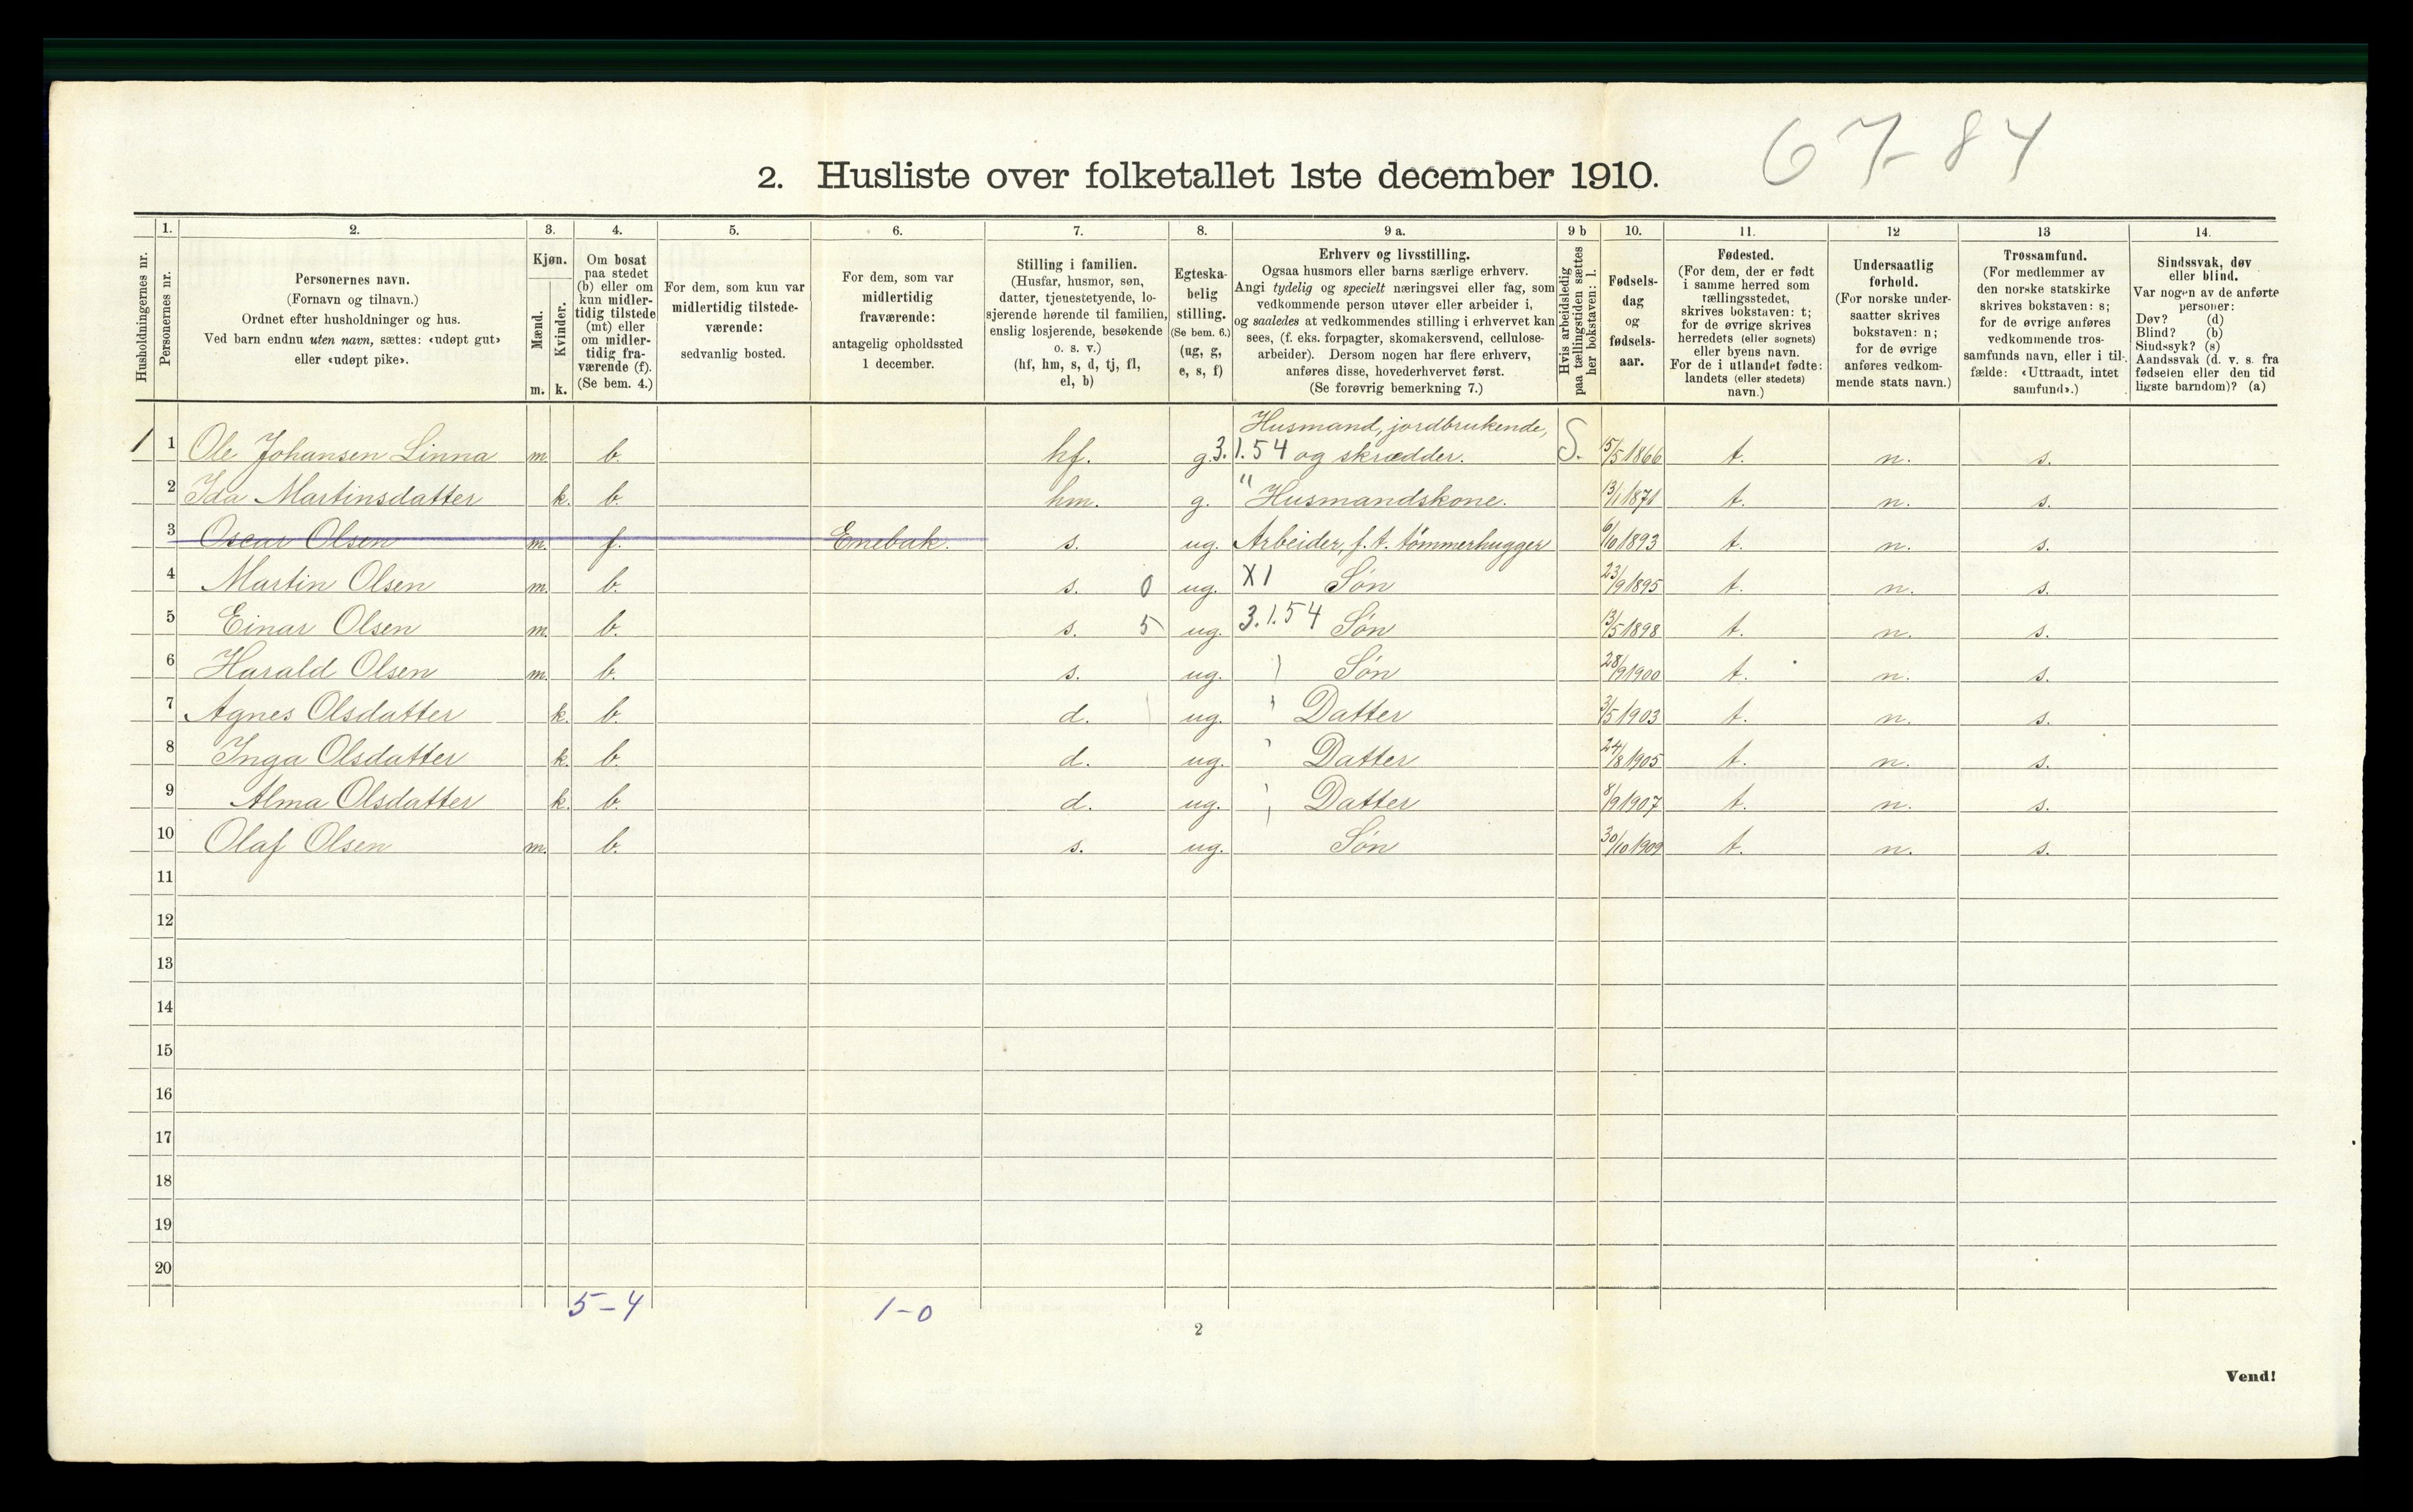 67-84
2. Husliste over folketallet 1ste december 1910.
1. 2. 3. 4. 5. 6. 7. 8. 9 a. 9 b 10. 11. 12 13 14.
Husholdningernes nr.
Personernes nr.
Personernes navn.
(Fornavn og tilnavn.)
Ordnet efter husholdninger og hus.
Ved barn endnu uten navn, sættes: «udøpt gut»
eller «udøpt pike».
Kjøn.
Mænd.
Kvinder.
m. k.
Om bosat
paa stedet
(b) eller om
kun midler-
tidig tilstede
(mt) eller
om midler-
tidig fra-
værende (f).
(Se bem. 4.)
For dem, som kun var
midlertidig tilstede-
værende:
sedvanlig bosted.
For dem, som var
midlertidig
fraværende:
antagelig opholdssted
1 december.
Stilling i familien.
(Husfar, husmor, søn,
datter, tjenestetyende, lo-
sjerende hørende til familien,
enslig losjerende, besøkende
o. s. v.)
(hf, hm, s, d, tj, fl,
el, b)
Egteska-
belig
stilling.
(Se bem. 6.)
(ug, g,
e, s, f)
Erhverv og livsstilling.
Ogsaa husmors eller barns særlige erhverv.
Angi tydelig og specielt næringsvei eller fag, som
vedkommende person utøver eller arbeider i,
og saaledes at vedkommendes stilling i erhvervet kan
sees, (f. eks. forpagter, skomakersvend, cellulose-
arbeider). Dersom nogen har flere erhverv,
anføres disse, hovederhvervet først.
(Se forøvrig bemerkning 7.)
Hvis arbeidsledig
paa tællingstiden sættes
her bokstaven: l.
Fødsels-
dag
og
fødsels-
aar.
Fødested.
(For dem, der er født
i samme herred som
tællingsstedet,
skrives bokstaven: t;
for de øvrige skrives
herredets (eller sognets)
eller byens navn.
For de i utlandet fødte:
landets (eller stedets)
navn.)
Undersaatlig
forhold.
(For norske under-
saatter skrives
bokstaven: n;
for de øvrige
anføres vedkom-
mende stats navn.)
Trossamfund.
(For medlemmer av
den norske statskirke
skrives bokstaven: s;
for de øvrige anføres
vedkommende tros-
samfunds navn, eller i til-
fælde: «Uttraadt, intet
samfund».)
Sindssvak, døv
eller blind.
Var nogen av de anførte
personer:
Døv? (d)
Blind? (b)
Sindssyk? (s)
Aandssvak (d. v. s. fra
fødselen eller den tid
ligste barndom)? (a)
Husmand, jordbrukende,
1 1 Ole Johansen Linna m. b. hf. g. 3.1.54 og skrædder. S. 15/5 1866 t. n. s.
2 Ida Martinsdatter k. b. hm. g. " Husmandskone. 13/1 1871 t. n. s.
3 Oscar Olsen m. f. Enebak. s. ug. Arbeider, f. t. tømmerhugger 6/10 1893 t. n. s.
4 Martin Olsen m. b. s. 0 ug. X1 Søn 23/9 1895 t. n. s.
5 Einar Olsen m. b. s. 5 ug. 3.1.54 Søn 13/5 1898 t. n. s.
6 Harald Olsen m. b. s. ug. Søn 28/9 1900 t. n. s.
7 Agnes Olsdatter k. b. d. ug. Datter 3/5 1903 t. n. s.
8 Inga Olsdatter k. b. d. ug. Datter 24/8 1905 t. n. s.
9 Alma Olsdatter k. b. d. ug. Datter 8/9 1907 t. n. s.
10 Olaf Olsen m. b. s. ug. Søn 30/10 1909 t. n. s.
11
12
13
14
15
16
17
18
19
20
5-4 1-0
2
Vend!